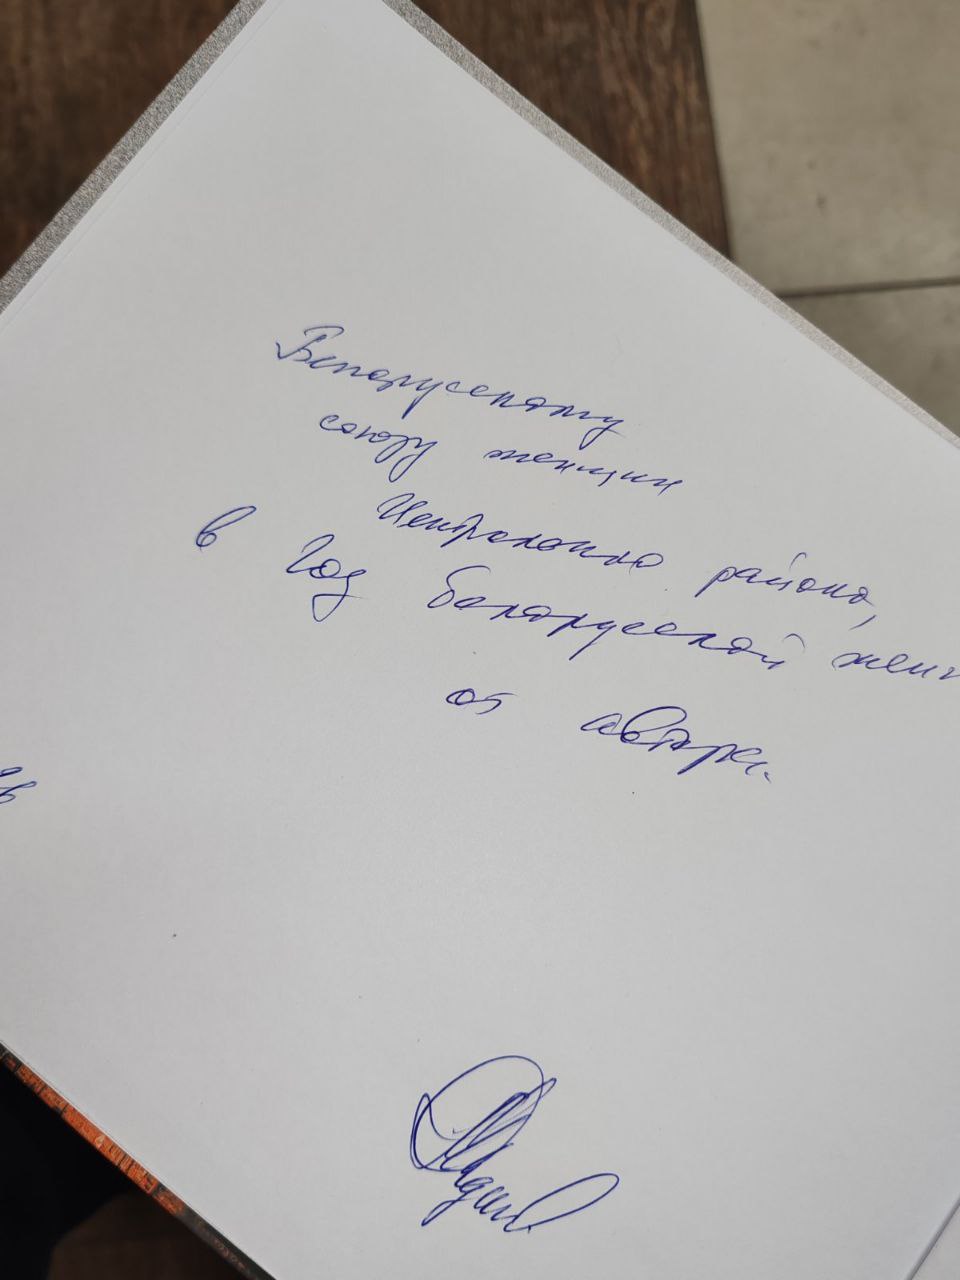 Белорусскому
союзу женщин
Центрального района,
в Год белорусской женщ
от автора.